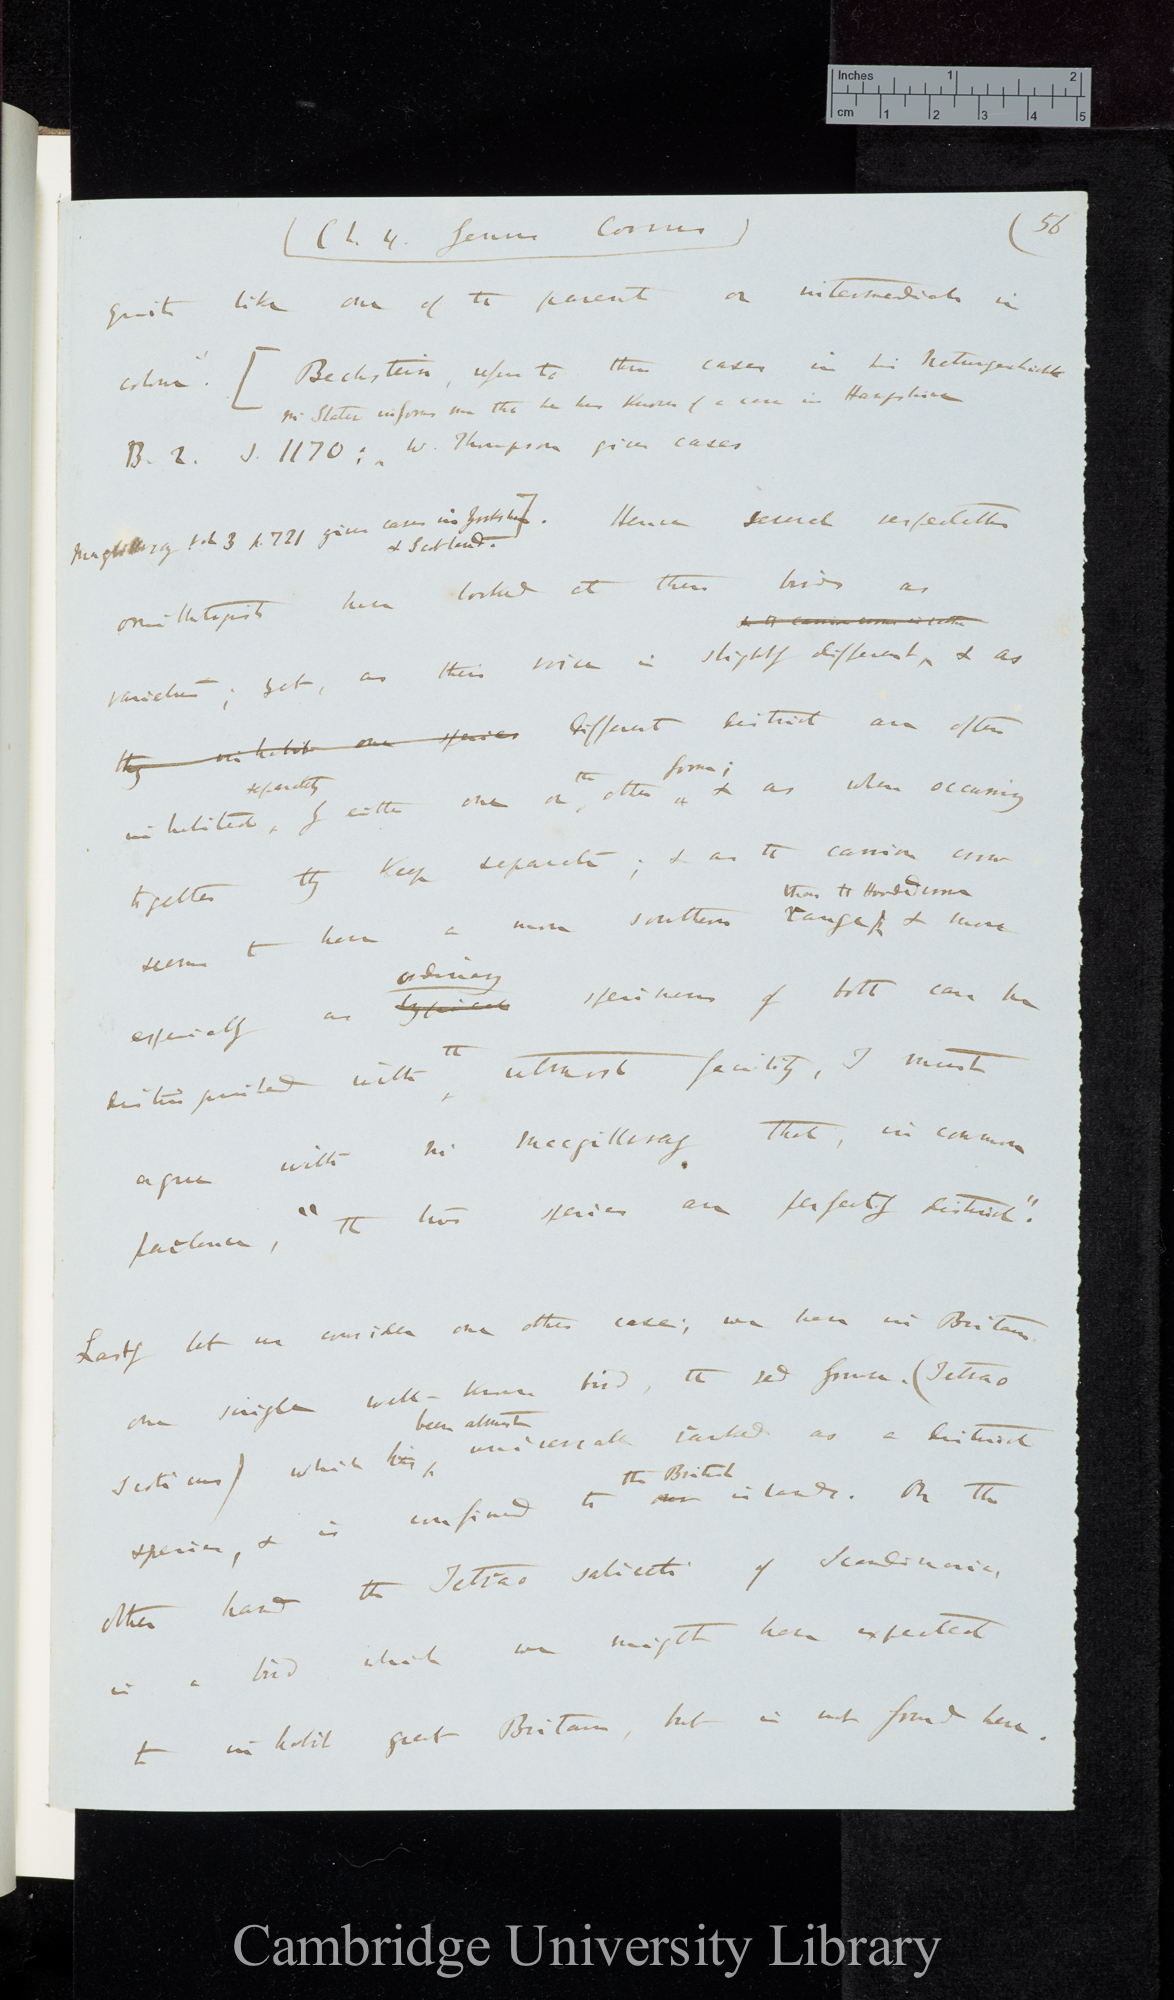 Inches 1 2
cm 1 2 3 4 5
(Ch. 4. Genus Corvus)
(56
quite like one of the parents or intermediate in
colour". [Bechstein, refers to three cases in his Naturgeschichte
Mr Slater informs me that he has known of a case in Hampshire
B. 2. s. 1170; W. Thompson gives cases
Macgillivray vol 3 p. 721 gives cases in Yorkshire]. Hence several respectable
& Scotland.
ornithologists have looked at these birds as
& of carrion crows in
varieties; yet, as their voice is slightly different, & as
they inhabit one species different districts are often
separately the form;
inhabited, by either one or other & as when occurring
together they keep separate; & as the carrion crow
than the Hooded crow
seems to have a more southern range, & more
ordinary
especially as typical specimens of both can be
the
distinguished with utmost facility, I must
agree with Mr Macgillivray that, in common
parlance, "the two species are perfectly distinct".
Lastly let us consider one other case; we have in Britain
one single well-known bird, the red grouse (Tetrao
been almost
Scoticus) which has universally ranked as a distinct
the British
species, & is confined to our islands. On the
other hand the Tetrao saliceti of Scandinavia,
is a bird which we might have expected
to inhabit great Britain, but is not found here.
Cambridge University Library